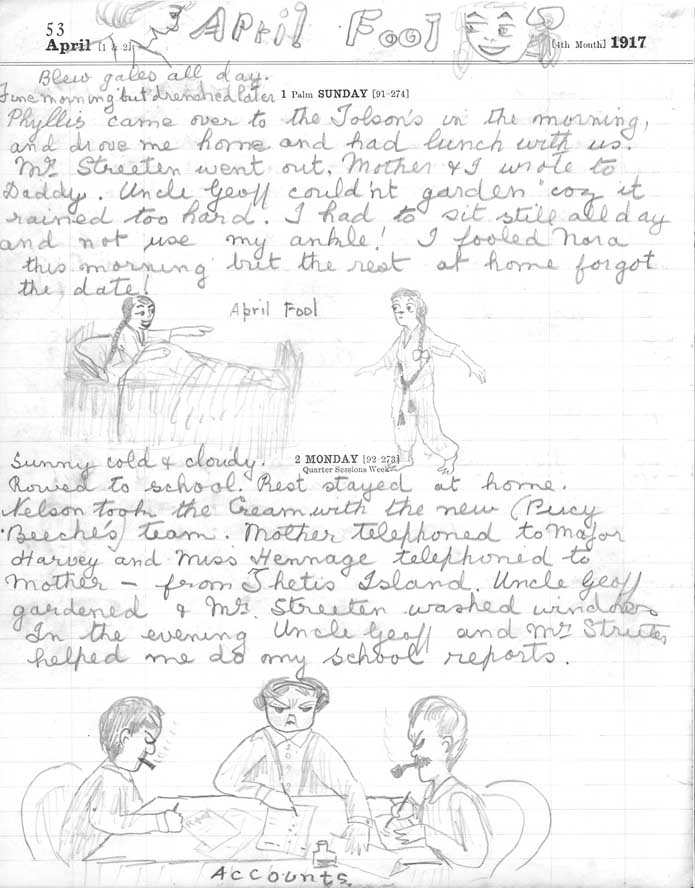 53
April [1 & 2]
April Fool
[4th Month] 1917
Blew gales all day.
Fine morning but drenched later
1 Palm SUNDAY [91-274]
Phyllis came over to the Tolson's in the morning,
and drove me home and had lunch with us.
Mr. Streeten went out, Mother & I wrote to
Daddy. Uncle Geoff could'nt garden "coz it
rained too hard. I had to sit still all day
and not use my ankle! I fooled Nora
this morning but the rest at home forgot
the date!
April Fool
2 MONDAY [92-273]
Quarter Sessions Week
Sunny cold & cloudy.
Rowed to school. Rest stayed at home.
Nelson took the Cream with the new (Percy
Beeche's) team. Mother telephoned to Major
Harvey and Miss Hennage telephoned to
Mother – from Thetis Island. Uncle Geoff
gardened & Mr. Streeten washed windows
In the evening Uncle Geoff and Mr Streeten
helped me do my school reports.
Accounts.